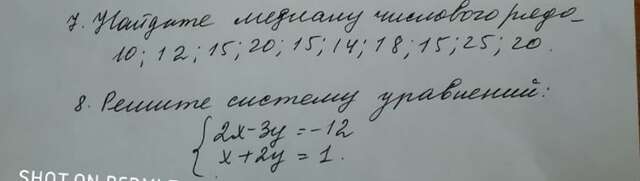 7. Найдите медиану числового ряда
10; 12; 15; 20; 15; 14; 18; 15; 25; 20.
8. Решите систему уравнений:
{ 2x-3y=-12
x+2y=1.
SHOT ON